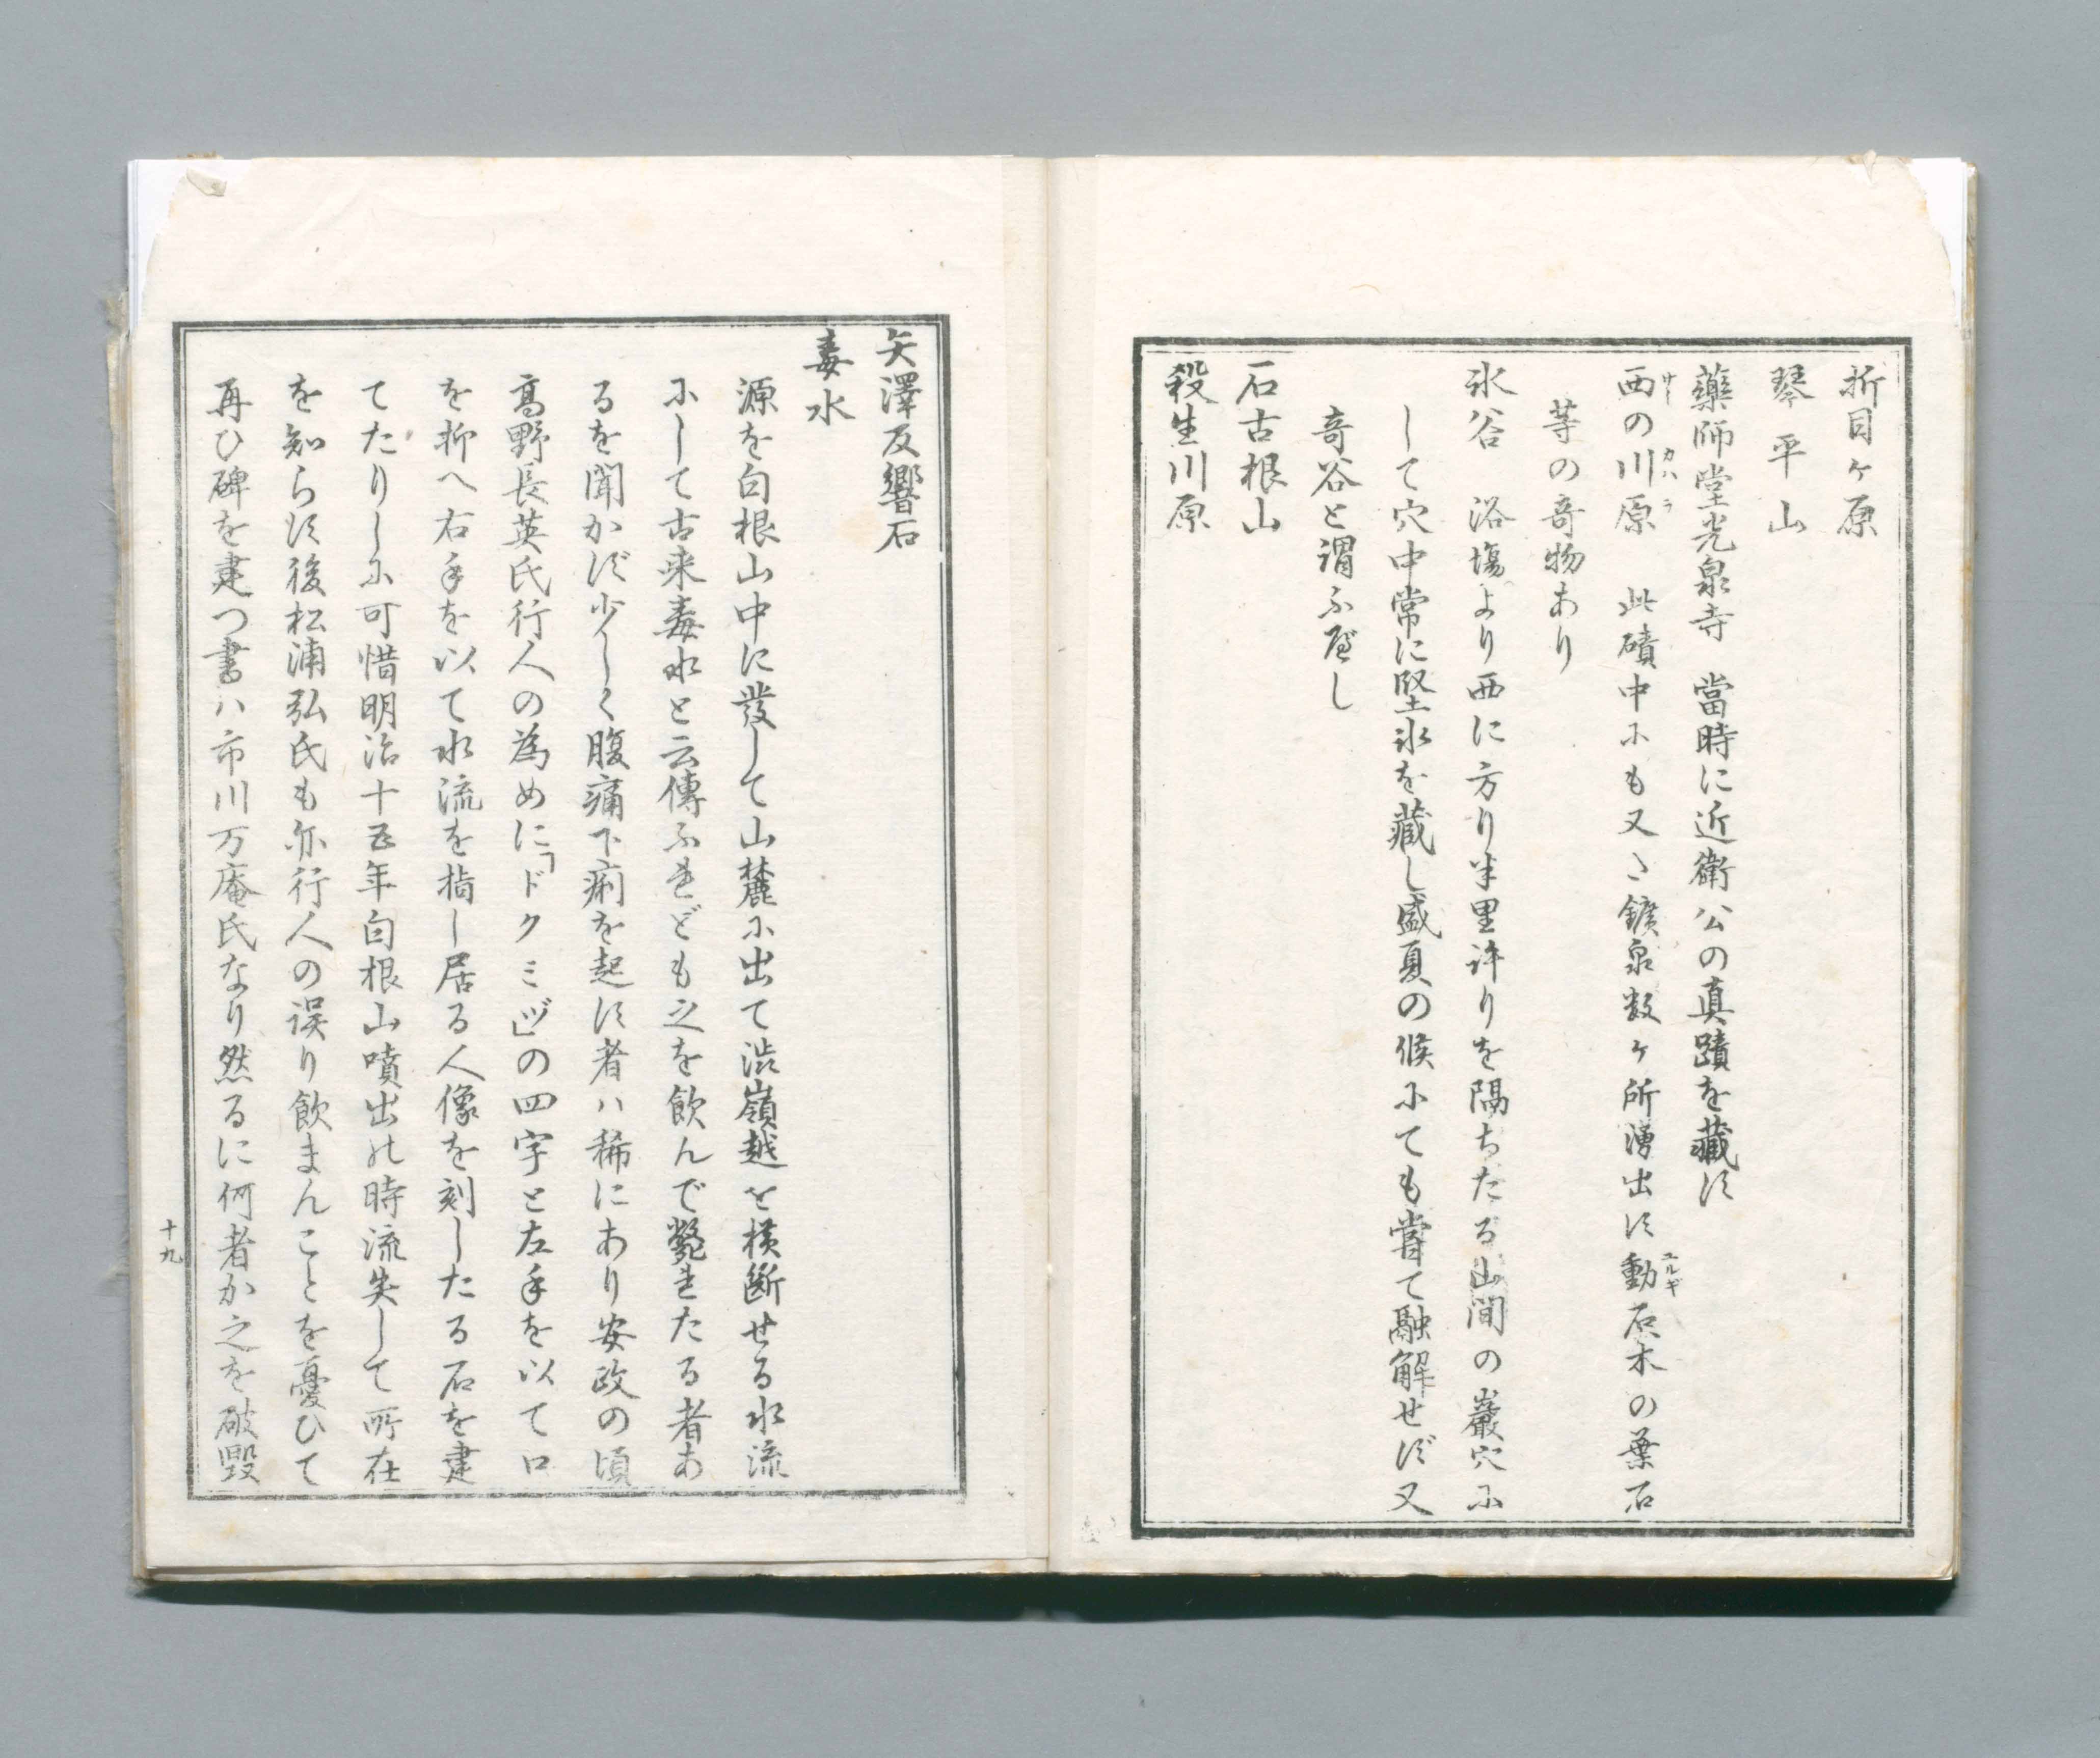 折目ヶ原
琴平山
藥師堂光泉寺　當時に近衛公の真蹟を藏す
西の川原　此磧中にも又々鑛泉数ヶ所湧出す動石木の葉石
サイ カハラ
ユルギ
等の竒物あり
氷谷　浴塲より西に方り半里許りを隔ちたる山間の巖穴に
して穴中常に堅氷を藏し盛夏の候にても嘗て融解せず又
竒谷と謂ふ可し
石古根山
殺生川原
矢澤反響石
毒水
源を白根山中に發して山麓に出て渋嶺越を横断せる水流
にして古来毒水と云傳ふれども之を飲んで斃れたる者あ
るを聞かず少しく腹痛下痢を起す者ハ稀にあり安政の頃
高野長英氏行人の為めに「ドクミヅ」の四字と左手を以て口
を抑へ右手を以て水流を指し居る人像を刻したる石を建
てたりしに可惜明治十五年白根山噴出の時流失して所在
を知らす後松浦弘氏も亦行人の誤り飲まんことを憂ひて
再ひ碑を建つ書ハ市川万庵氏なり然るに何者か之を破毀
十九